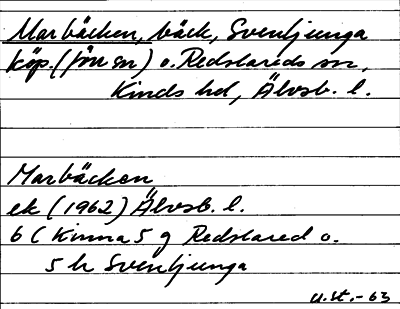 Marbäcken, bäck, Svenljunga
köp. (förr sn) o. Redslareds sn,
Kinds hd, Älvsb. l.
Marbäcken
ek (1962) Älvsb. l.
6 C Kinna 5 g Redslared o.
5 h Svenljunga
U.St.-63